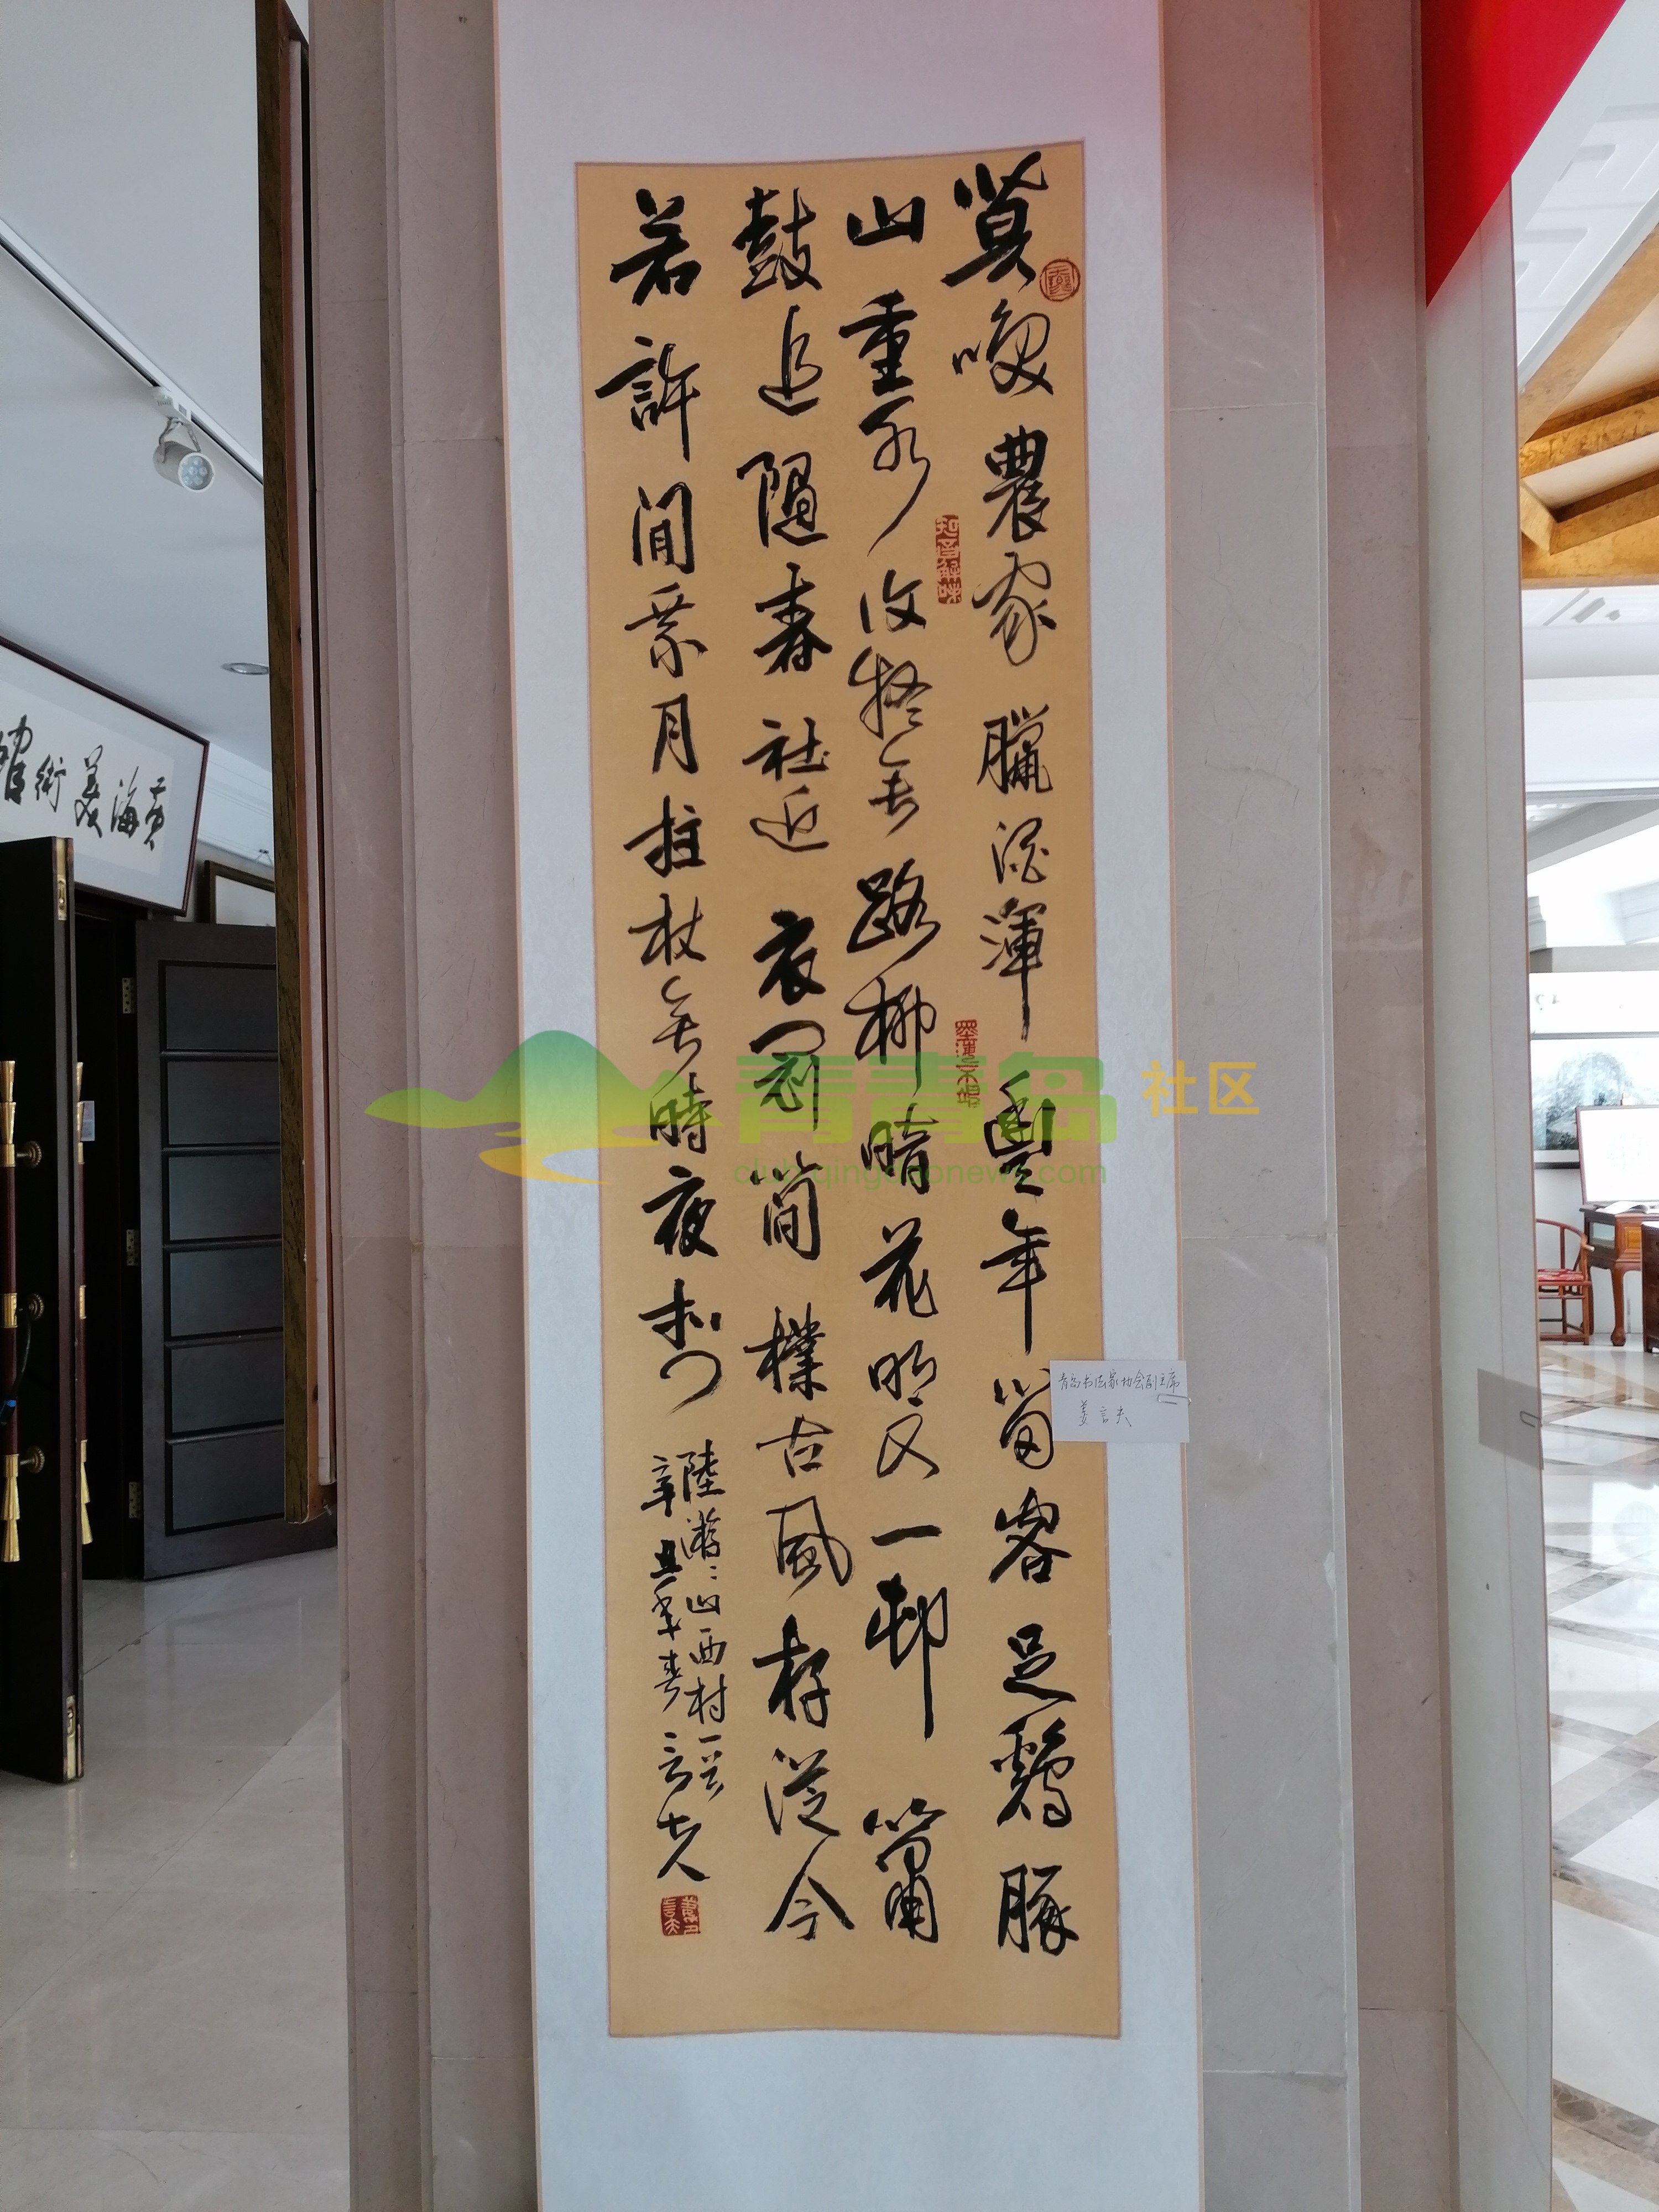 莫喚農家臘酒渾豐年留客足鷄豚
山重水復疑無路柳暗花明又一邨簫
鼓追隨春社近衣冠簡樸古風存從今
若許閒乘月拄杖無時夜扣門
陸游遊山西村一首
辛丑年春言夫
知音解味
青岛书法家协会副主席
姜言夫
黄海美術館
青青岛社区
club.qingdaonews.com